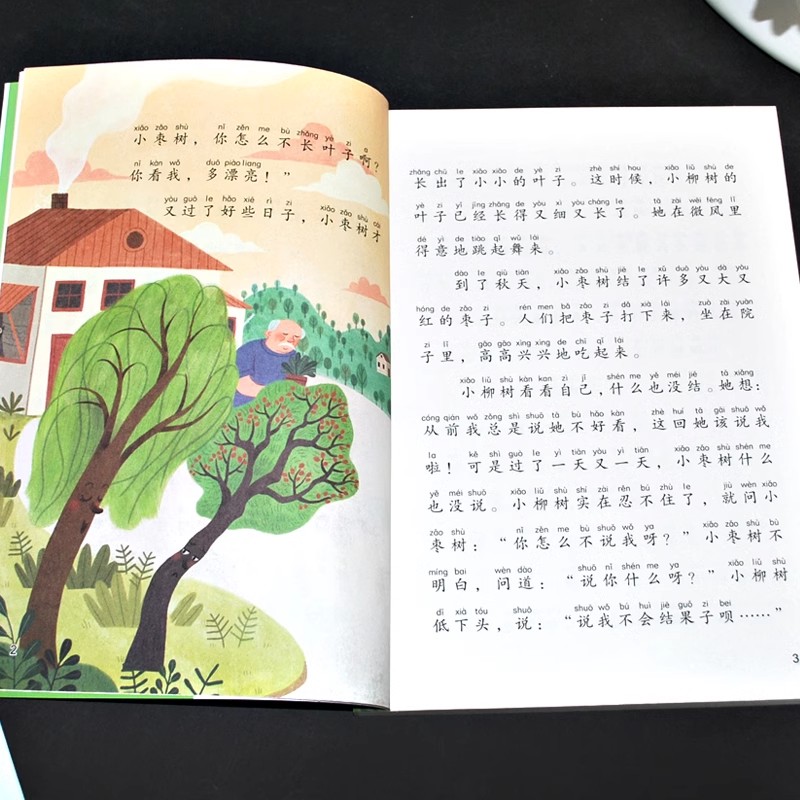 xiǎo zǎo shù nǐ zěn me bù zhǎng yè zi a
小枣树，你怎么不长叶子啊？
nǐ kàn wǒ duō piào liang
你看我，多漂亮！”
yòu guò le hǎo xiē rì zi xiǎo zǎo shù cái
又过了好些日子，小枣树才
2
zhǎng chū le xiǎo xiǎo de yè zi zhè shí hou xiǎo liǔ shù de
长出了小小的叶子。这时候，小柳树的
yè zi yǐ jīng zhǎng de yòu xì yòu cháng le tā zài wēi fēng lǐ
叶子已经长得又细又长了。她在微风里
dé yì de tiào qǐ wǔ lái
得意地跳起舞来。
dào le qiū tiān xiǎo zǎo shù jiē le xǔ duō yòu dà yòu
到了秋天，小枣树结了许多又大又
hóng de zǎo zi rén men bǎ zǎo zi dǎ xià lái zuò zài yuàn
红的枣子。人们把枣子打下来，坐在院
zi lǐ gāo gāo xìng xìng de chī qǐ lái
子里，高高兴兴地吃起来。
xiǎo liǔ shù kàn kan zì jǐ shén me yě méi jiē tā xiǎng
小柳树看看自己，什么也没结。她想：
cóng qián wǒ zǒng shì shuō tā bù hǎo kàn zhè huí tā gāi shuō wǒ
从前我总是说她不好看，这回她该说我
la kě shì guò le yì tiān yòu yì tiān xiǎo zǎo shù shén me
啦！可是过了一天又一天，小枣树什么
yě méi shuō xiǎo liǔ shù shí zài rěn bú zhù le jiù wèn xiǎo
也没说。小柳树实在忍不住了，就问小
zǎo shù nǐ zěn me bù shuō wǒ ya xiǎo zǎo shù bù
枣树：“你怎么不说我呀？”小枣树不
míng bai wèn dào shuō nǐ shén me ya xiǎo liǔ shù
明白，问道：“说你什么呀？”小柳树
dī xià tóu shuō shuō wǒ bú huì jiē guǒ zi bei
低下头，说：“说我不会结果子呗……”
3